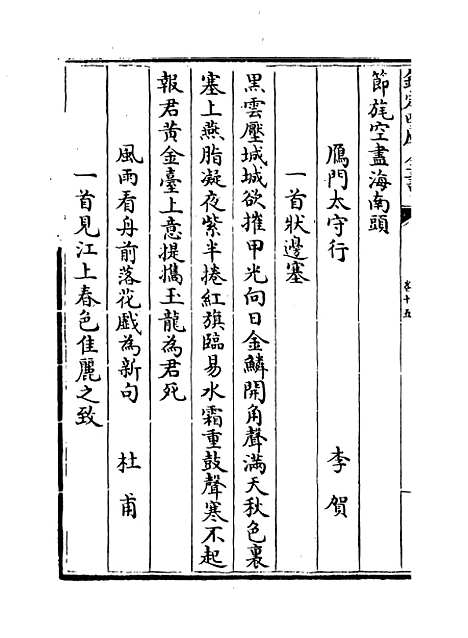 節旄空盡海南頭
鴈門太守行 李賀
一首狀邊塞
黑雲壓城城欲摧甲光向日金鱗開角聲滿天秋色裏
塞上燕脂凝夜紫半捲紅旗臨易水霜重鼓聲寒不起
報君黃金臺上意提攜玉龍為君死
風雨看舟前落花戲為新句 杜甫
一首見江上春色佳麗之致
卷十五